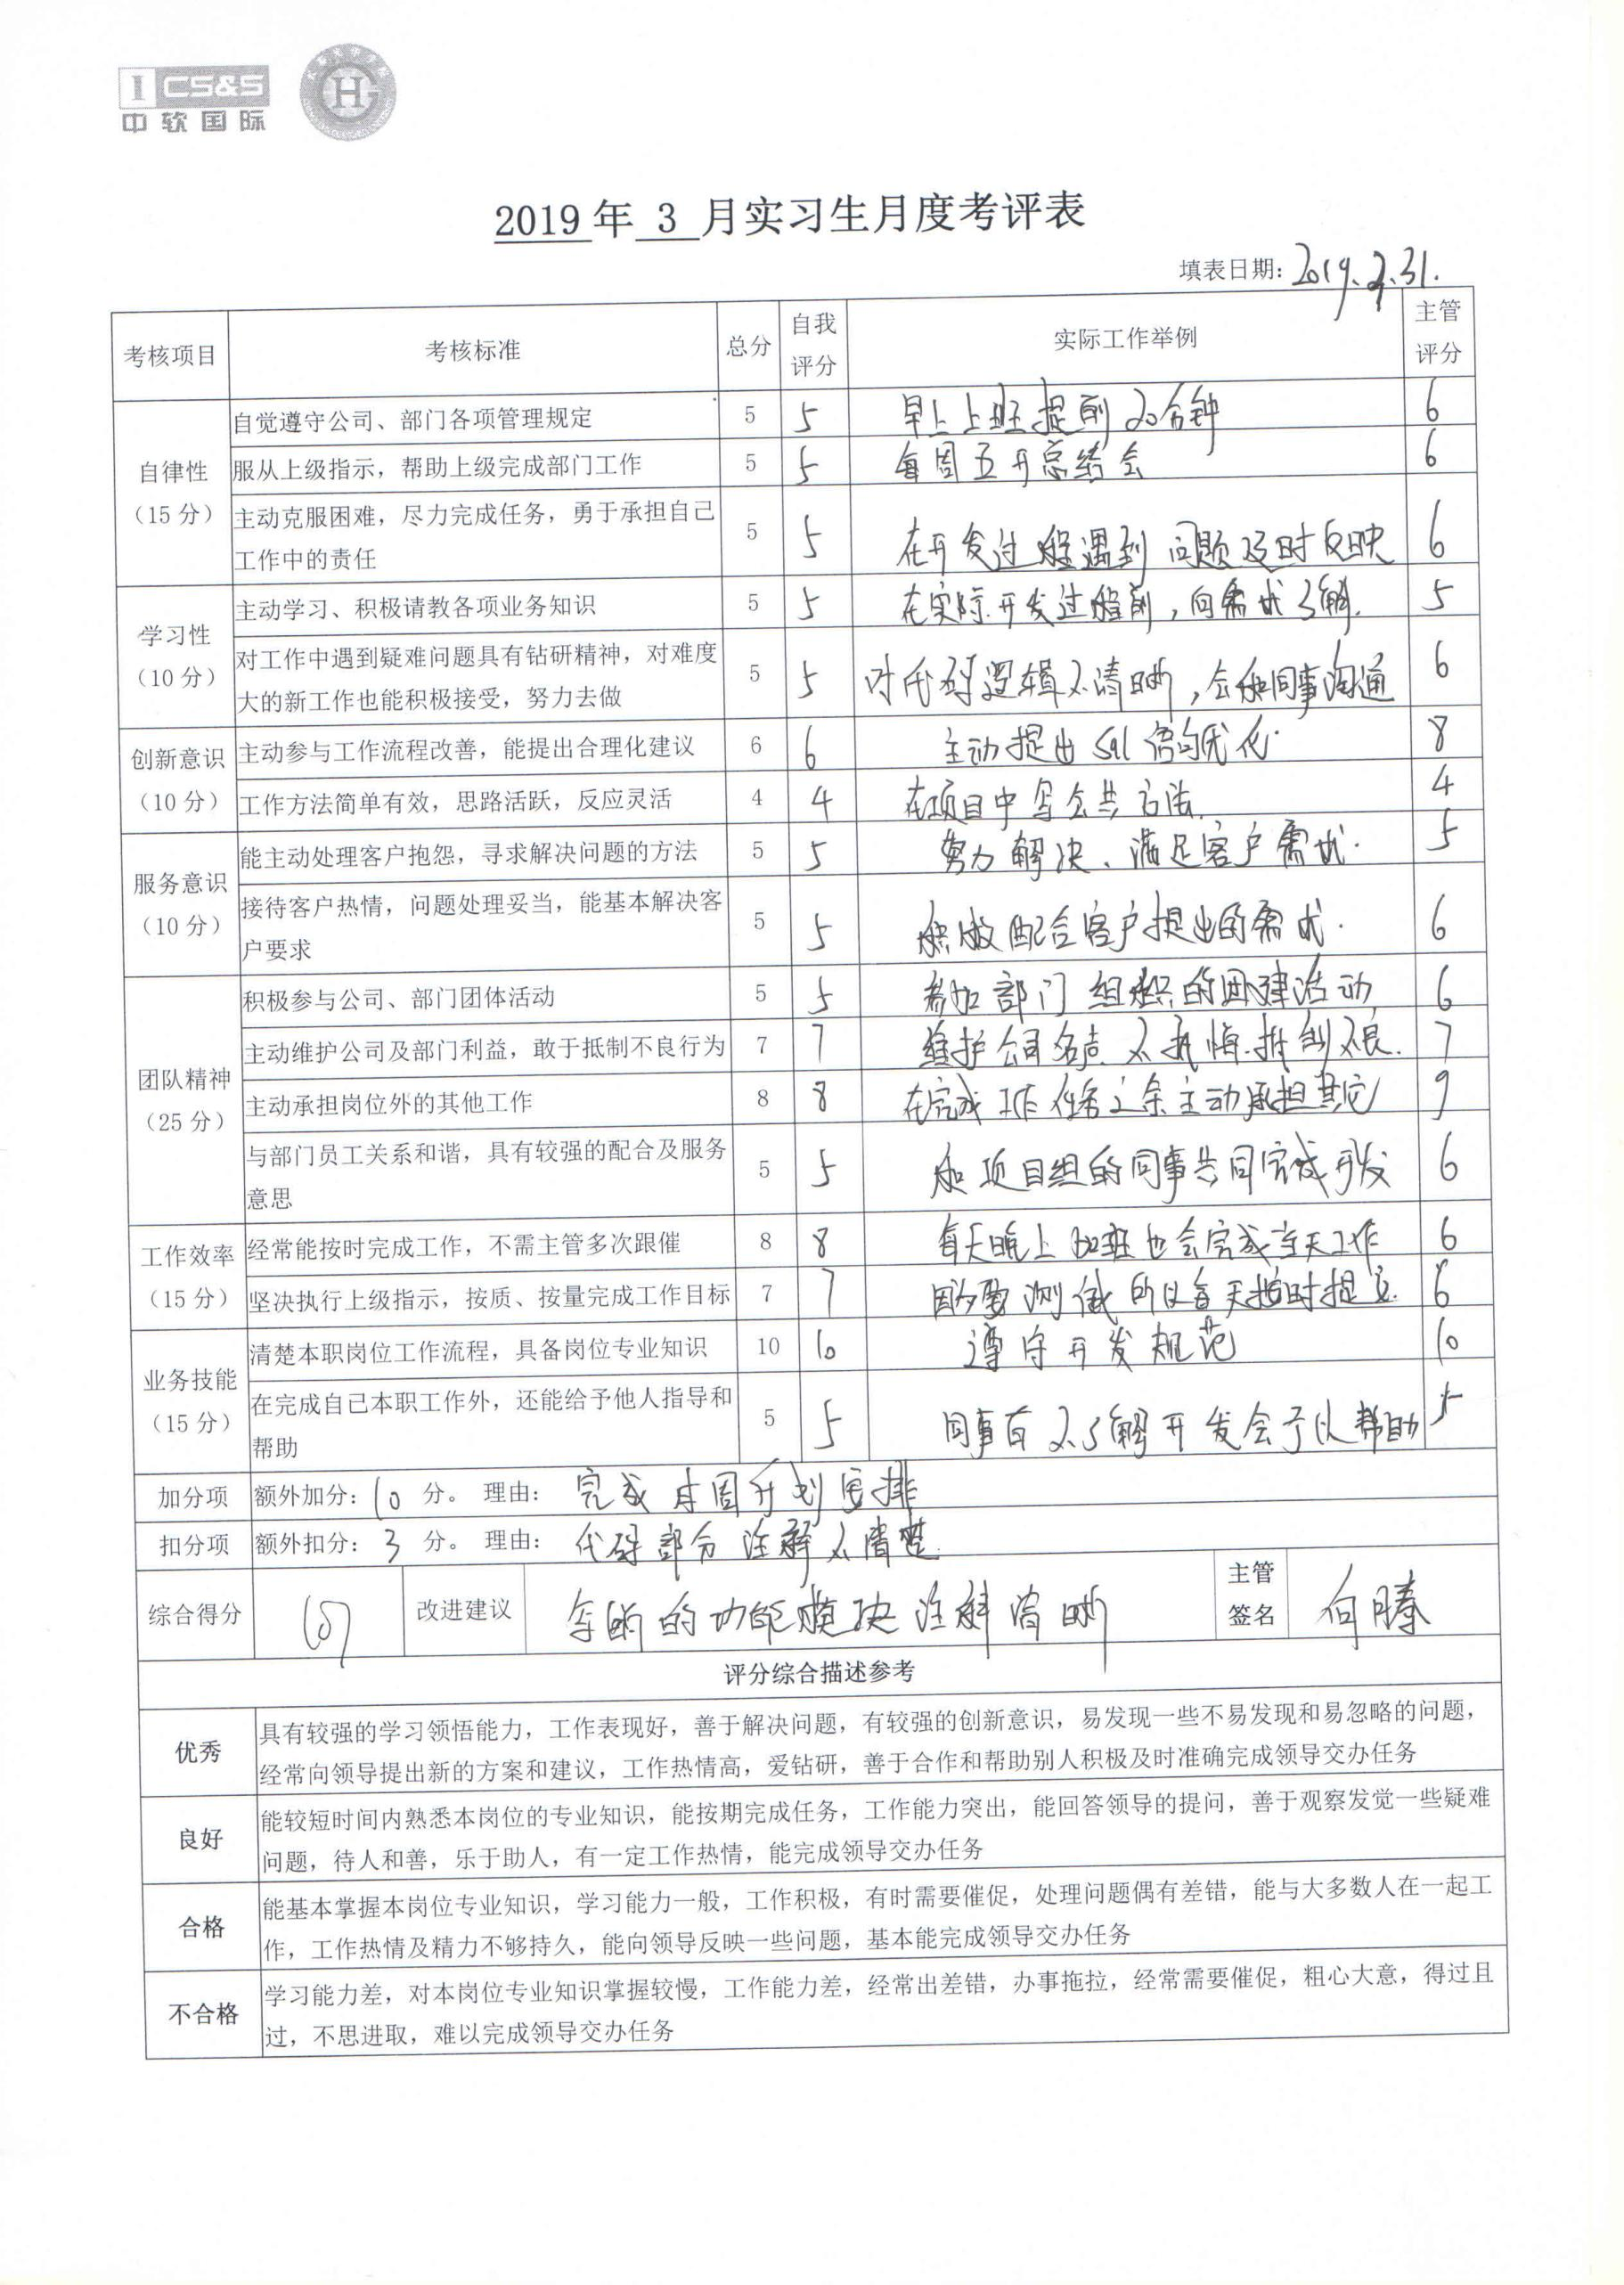 I CS&S
中软国际
2019 年 3 月实习生月度考评表
填表日期：2019.3.31.
考核项目 考核标准 总分 自我评分 实际工作举例 主管评分
自律性（15 分）
自觉遵守公司、部门各项管理规定 5 5 早上上班提前20分钟 6
服从上级指示，帮助上级完成部门工作 5 5 每周五开总结会 6
主动克服困难，尽力完成任务，勇于承担自己
工作中的责任 5 5 在开发过程遇到问题及时反映 6
学习性（10 分）
主动学习、积极请教各项业务知识 5 5 在实际开发过程前，向需求了解. 5
对工作中遇到疑难问题具有钻研精神，对难度
大的新工作也能积极接受，努力去做 5 5 对代码逻辑不清晰，会和同事沟通 6
创新意识（10 分）
主动参与工作流程改善，能提出合理化建议 6 6 主动提出Sql语句优化. 8
工作方法简单有效，思路活跃，反应灵活 4 4 在项目中写公共方法. 4
服务意识（10 分）
能主动处理客户抱怨，寻求解决问题的方法 5 5 努力解决、满足客户需求. 5
接待客户热情，问题处理妥当，能基本解决客
户要求 5 5 积极配合客户提出的需求. 6
团队精神（25 分）
积极参与公司、部门团体活动 5 5 参加部门组织的团建活动 6
主动维护公司及部门利益，敢于抵制不良行为 7 7 维护公司名声 不 不良. 7
主动承担岗位外的其他工作 8 8 在完成工作任务之余主动承担其它 9
与部门员工关系和谐，具有较强的配合及服务
意思 5 5 和项目组的同事共同完成开发 6
工作效率（15 分）
经常能按时完成工作，不需主管多次跟催 8 8 每天晚上加班也会完成当天工作 6
坚决执行上级指示，按质、按量完成工作目标 7 7 因为要测试所以每天按时提交. 6
业务技能（15 分）
清楚本职岗位工作流程，具备岗位专业知识 10 10 遵守开发规范 10
在完成自己本职工作外，还能给予他人指导和
帮助 5 5 同事有不了解开发会予以帮助 5
加分项 额外加分：10 分。 理由： 完成本周计划安排
扣分项 额外扣分：3 分。 理由： 代码部分注解不清楚.
综合得分 107 改进建议 的功能模块注解清晰 主管签名 何腾
评分综合描述参考
优秀
具有较强的学习领悟能力，工作表现好，善于解决问题，有较强的创新意识，易发现一些不易发现和易忽略的问题，
经常向领导提出新的方案和建议，工作热情高，爱钻研，善于合作和帮助别人积极及时准确完成领导交办任务
良好
能较短时间内熟悉本岗位的专业知识，能按期完成任务，工作能力突出，能回答领导的提问，善于观察发觉一些疑难
问题，待人和善，乐于助人，有一定工作热情，能完成领导交办任务
合格
能基本掌握本岗位专业知识，学习能力一般，工作积极，有时需要催促，处理问题偶有差错，能与大多数人在一起工
作，工作热情及精力不够持久，能向领导反映一些问题，基本能完成领导交办任务
不合格
学习能力差，对本岗位专业知识掌握较慢，工作能力差，经常出差错，办事拖拉，经常需要催促，粗心大意，得过且
过，不思进取，难以完成领导交办任务